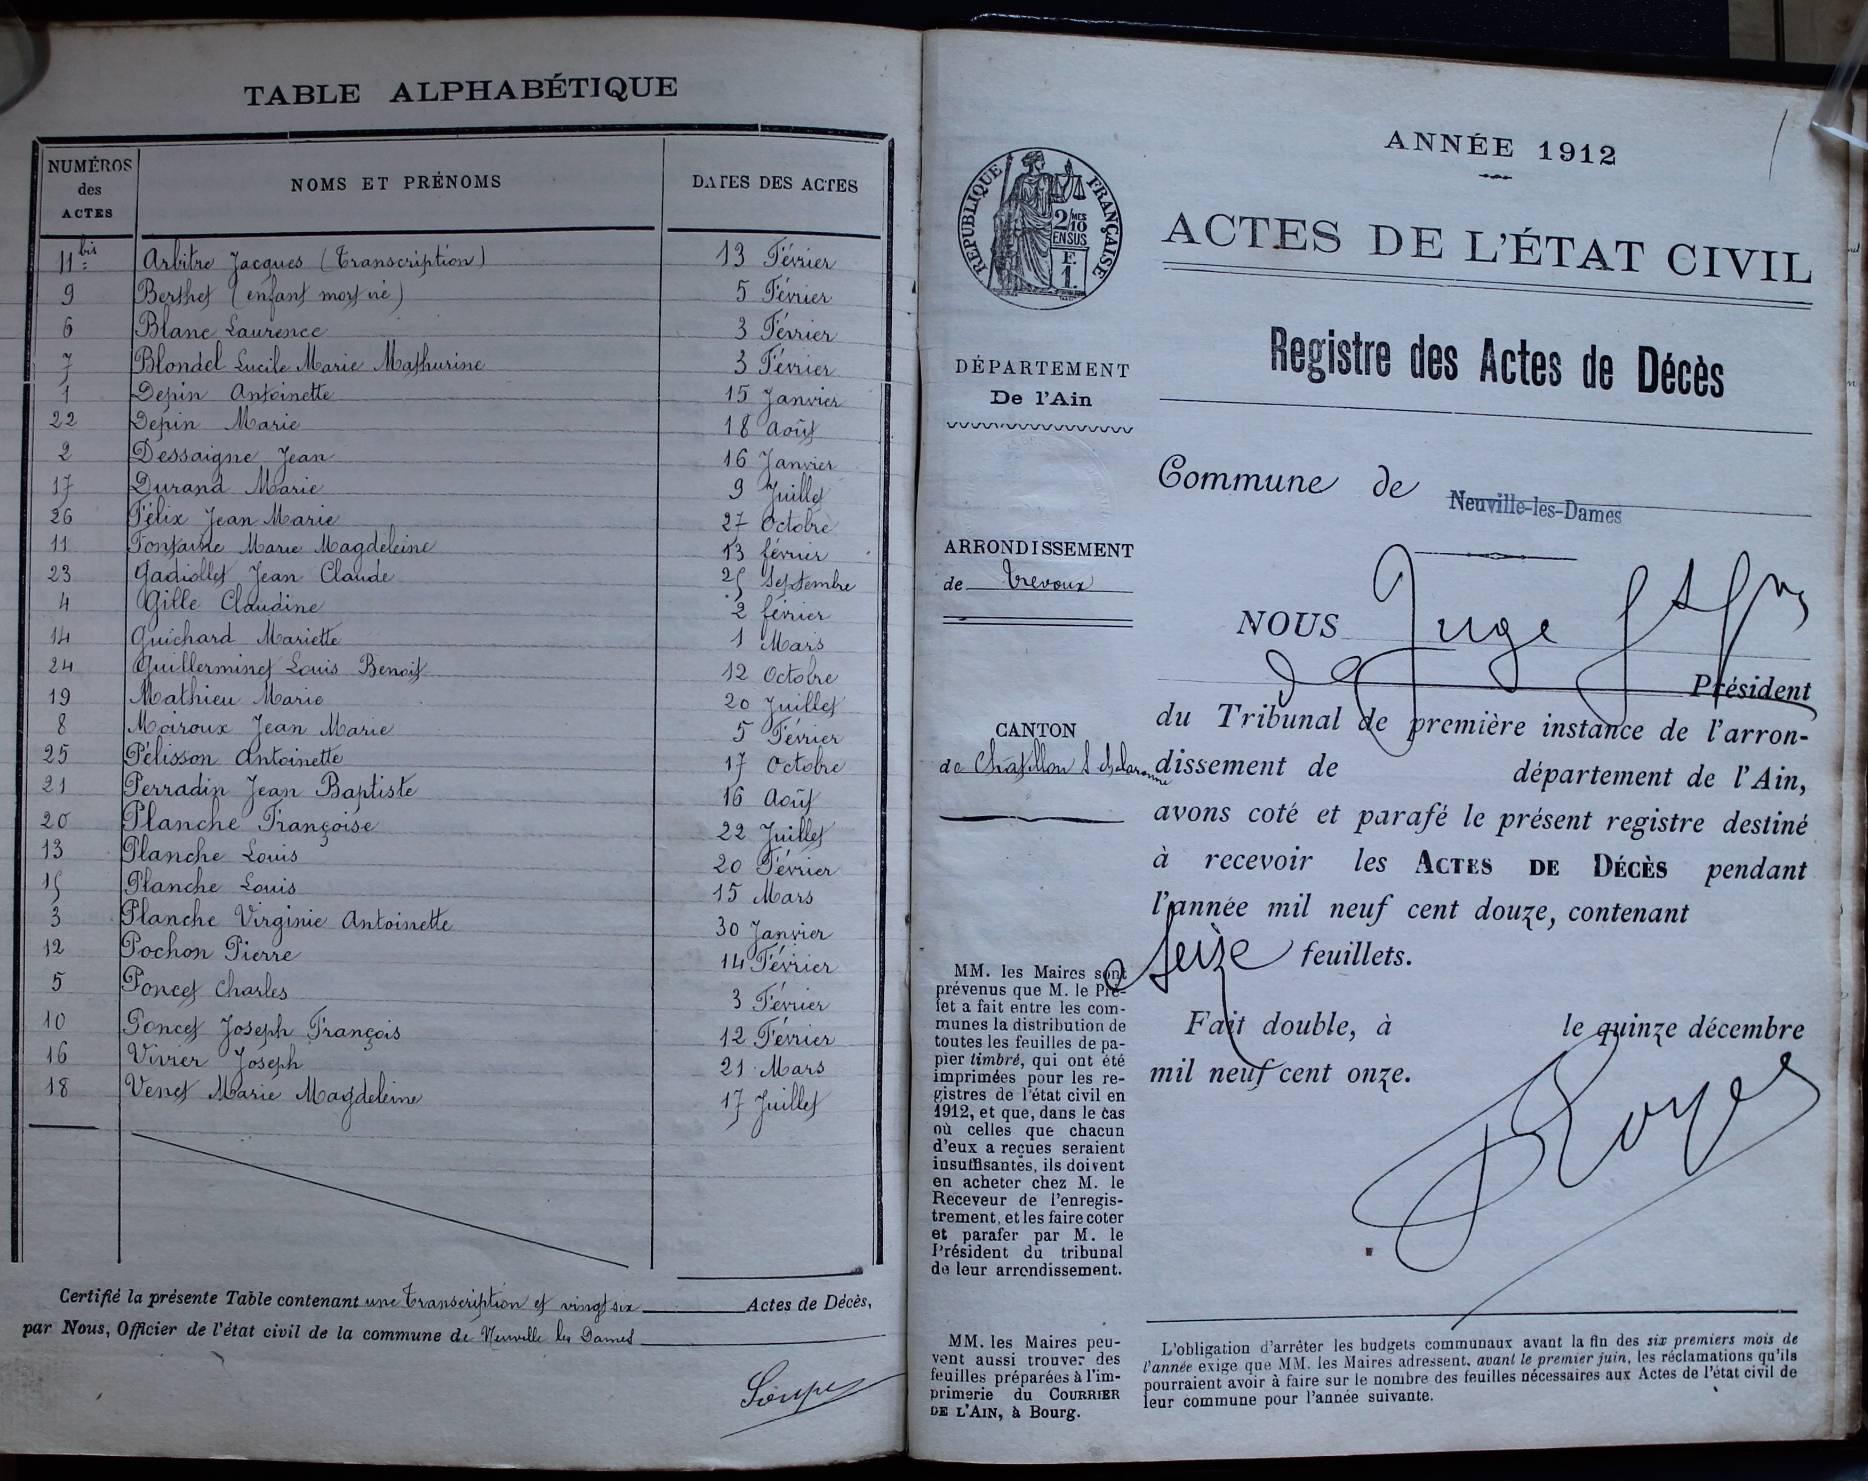 TABLE ALPHABÉTIQUE
NUMÉROS des ACTES | NOMS ET PRÉNOMS | DATES DES ACTES
11 bis Arbitre Jacques (Transcription) 13 Février
9 Berthet (enfant mort né) 5 Février
6 Blanc Laurence 3 Février
7 Blondel Lucile Marie Mathurine 3 Février
1 Depin Antoinette 15 Janvier
22 Depin Marie 18 Août
2 Dessaigne Jean 16 Janvier
17 Durand Marie 9 Juillet
26 Félix Jean Marie 27 Octobre
11 Fontaine Marie Magdeleine 13 février
23 Gadiollet Jean Claude 25 Septembre
4 Gille Claudine 2 février
14 Guichard Mariette 1 Mars
24 Guillerminet Louis Benoit 12 Octobre
19 Mathieu Marie 20 Juillet
8 Moiroux Jean Marie 5 Février
25 Pélisson Antoinette 17 Octobre
21 Perradin Jean Baptiste 16 Août
20 Planche Françoise 22 Juillet
13 Planche Louis 20 Février
15 Planche Louis 15 Mars
3 Planche Virginie Antoinette 30 Janvier
12 Pochon Pierre 14 Février
5 Poncet Charles 3 Février
10 Poncet Joseph François 12 Février
16 Vivier Joseph 21 Mars
18 Venet Marie Magdeleine 17 Juillet
Certifié la présente Table contenant une Transcription et vingt six Actes de Décès,
par Nous, Officier de l'état civil de la commune de Neuville les Dames
ANNÉE 1912
RÉPUBLIQUE FRANÇAISE
2/10 MES
EN SUS
F.
1.
ACTES DE L'ÉTAT CIVIL
DÉPARTEMENT
De l'Ain
Registre des Actes de Décès
Commune de Neuville-les-Dames
ARRONDISSEMENT
de Trevoux
NOUS Juge
Président
du Tribunal de première instance de l'arron-
CANTON
de Chatillon S Chalaronne
dissement de département de l'Ain,
avons coté et parafé le présent registre destiné
à recevoir les ACTES DE DÉCÈS pendant
l'année mil neuf cent douze, contenant
seize feuillets.
Fait double, à le quinze décembre
mil neuf cent onze.
MM. les Maires sont
prévenus que M. le Pré-
fet a fait entre les com-
munes la distribution de
toutes les feuilles de pa-
pier timbré, qui ont été
imprimées pour les re-
gistres de l'état civil en
1912, et que, dans le cas
où celles que chacun
d'eux a reçues seraient
insuffisantes, ils doivent
en acheter chez M. le
Receveur de l'enregis-
trement, et les faire coter
et parafer par M. le
Président du tribunal
de leur arrondissement.
MM. les Maires peu-
vent aussi trouver des
feuilles préparées à l'im-
primerie du COURRIER
DE L'AIN, à Bourg.
L'obligation d'arrêter les budgets communaux avant la fin des six premiers mois de
l'année exige que MM. les Maires adressent, avant le premier juin, les réclamations qu'ils
pourraient avoir à faire sur le nombre des feuilles nécessaires aux Actes de l'état civil de
leur commune pour l'année suivante.